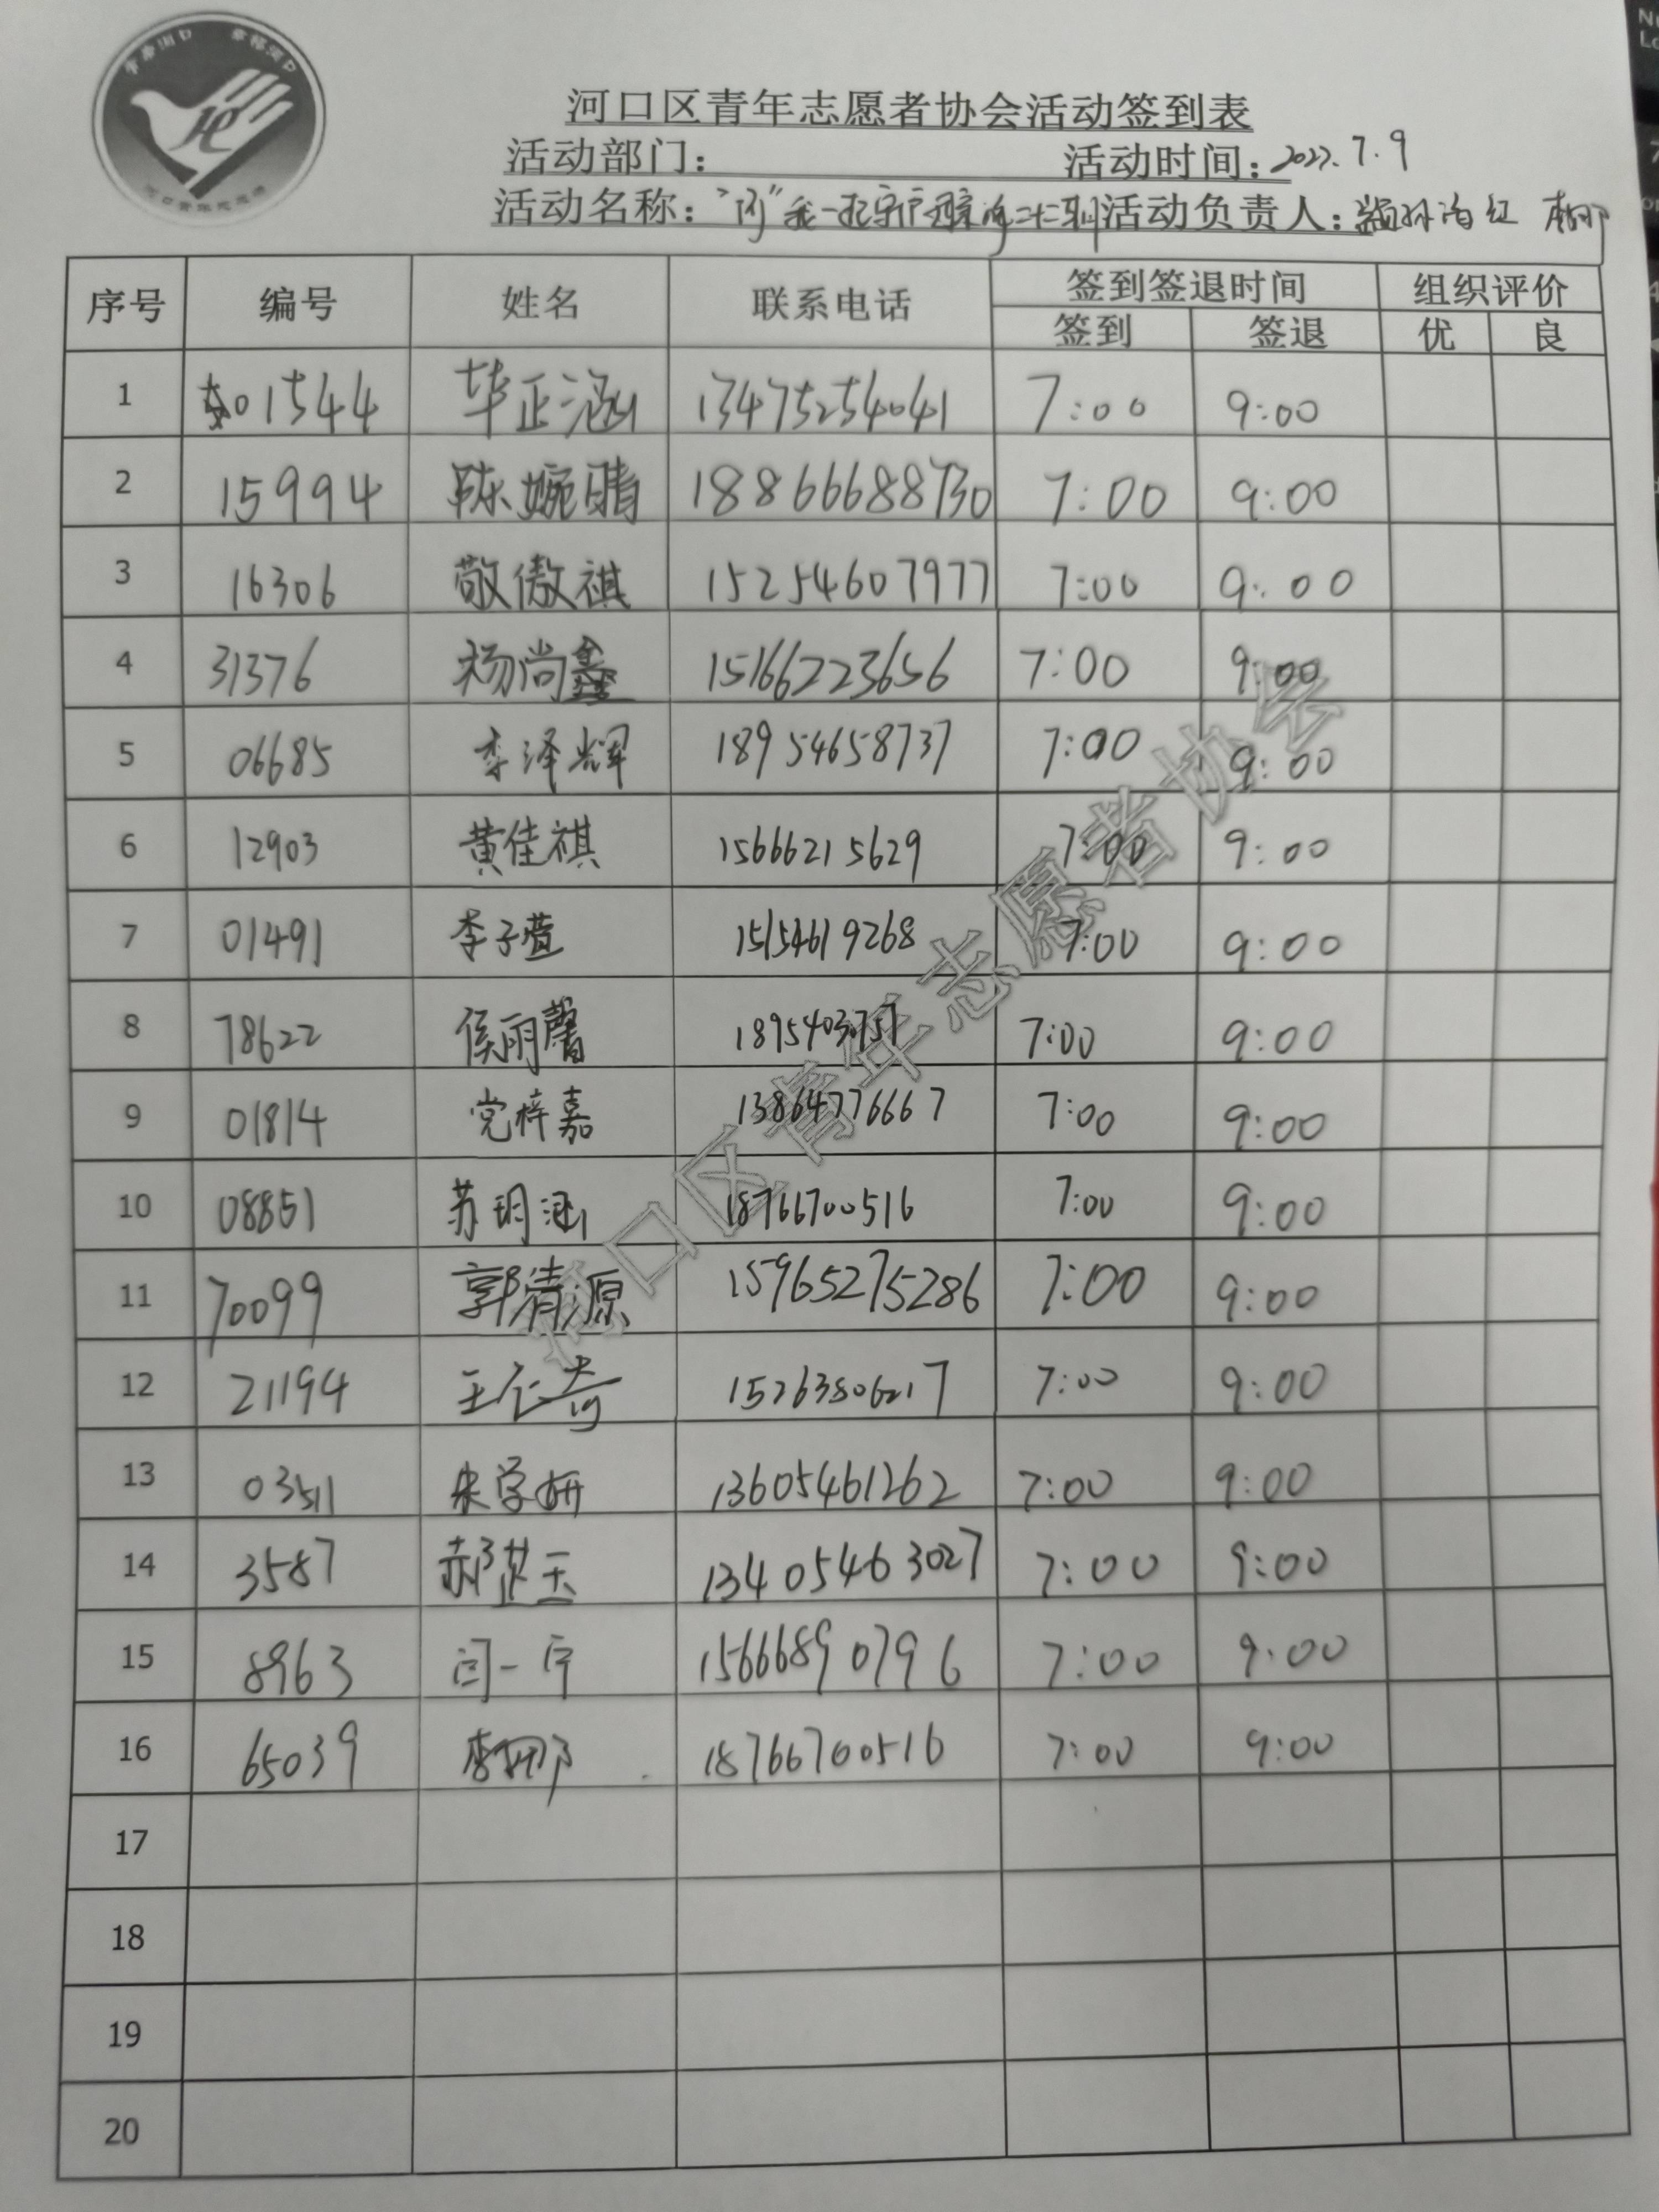 河口区青年志愿者协会活动签到表
活动部门： 活动时间：2022.7.9
活动名称："河"我一起守护 活动负责人：颛孙海红 李娜
序号 编号 姓名 联系电话 签到签退时间 组织评价
签到 签退 优 良
1 01544 毕正涵 13475254041 7:00 9:00
2 15994 陈婉晴 18866688730 7:00 9:00
3 16306 敬傲祺 15254607977 7:00 9:00
4 31376 杨尚鑫 15166223656 7:00 9:00
5 06685 李泽辉 18954658737 7:00 9:00
6 12903 黄佳祺 15666215629 7:00 9:00
7 01491 李子萱 15154619268 7:00 9:00
8 78622 侯丽馨 18954030757 7:00 9:00
9 01814 党梓嘉 13864776667 7:00 9:00
10 08851 苏玥涵 18766700516 7:00 9:00
11 70099 郭清源 15965275286 7:00 9:00
12 21194 王仁奇 15263806217 7:00 9:00
13 03511 朱学妍 13605461262 7:00 9:00
14 3587 郝芷玉 13405463027 7:00 9:00
15 8963 闫一宁 15666890796 7:00 9:00
16 65039 李娜 18766700516 7:00 9:00
17
18
19
20
河口区青年志愿者协会